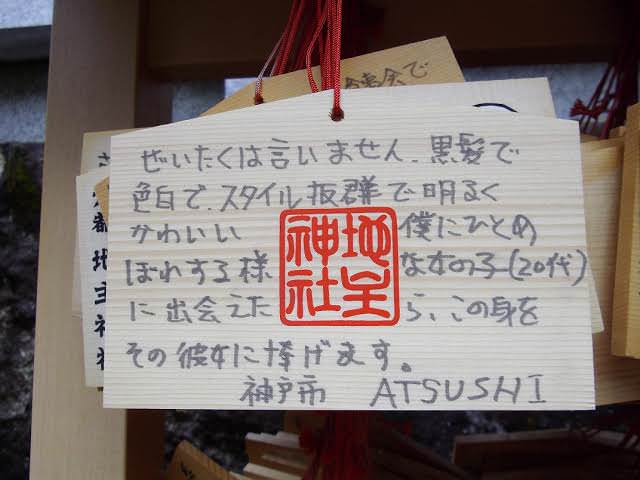 ぜいたくは言いません、黒髪で
色白で、スタイル抜群で明るく
かわいい 僕にひとめ
ぼれする様 な女の子(20代)
に出会えた ら、この身を
その彼女に捧げます。
神戸市 ATSUSHI
地主
神社
地主神社